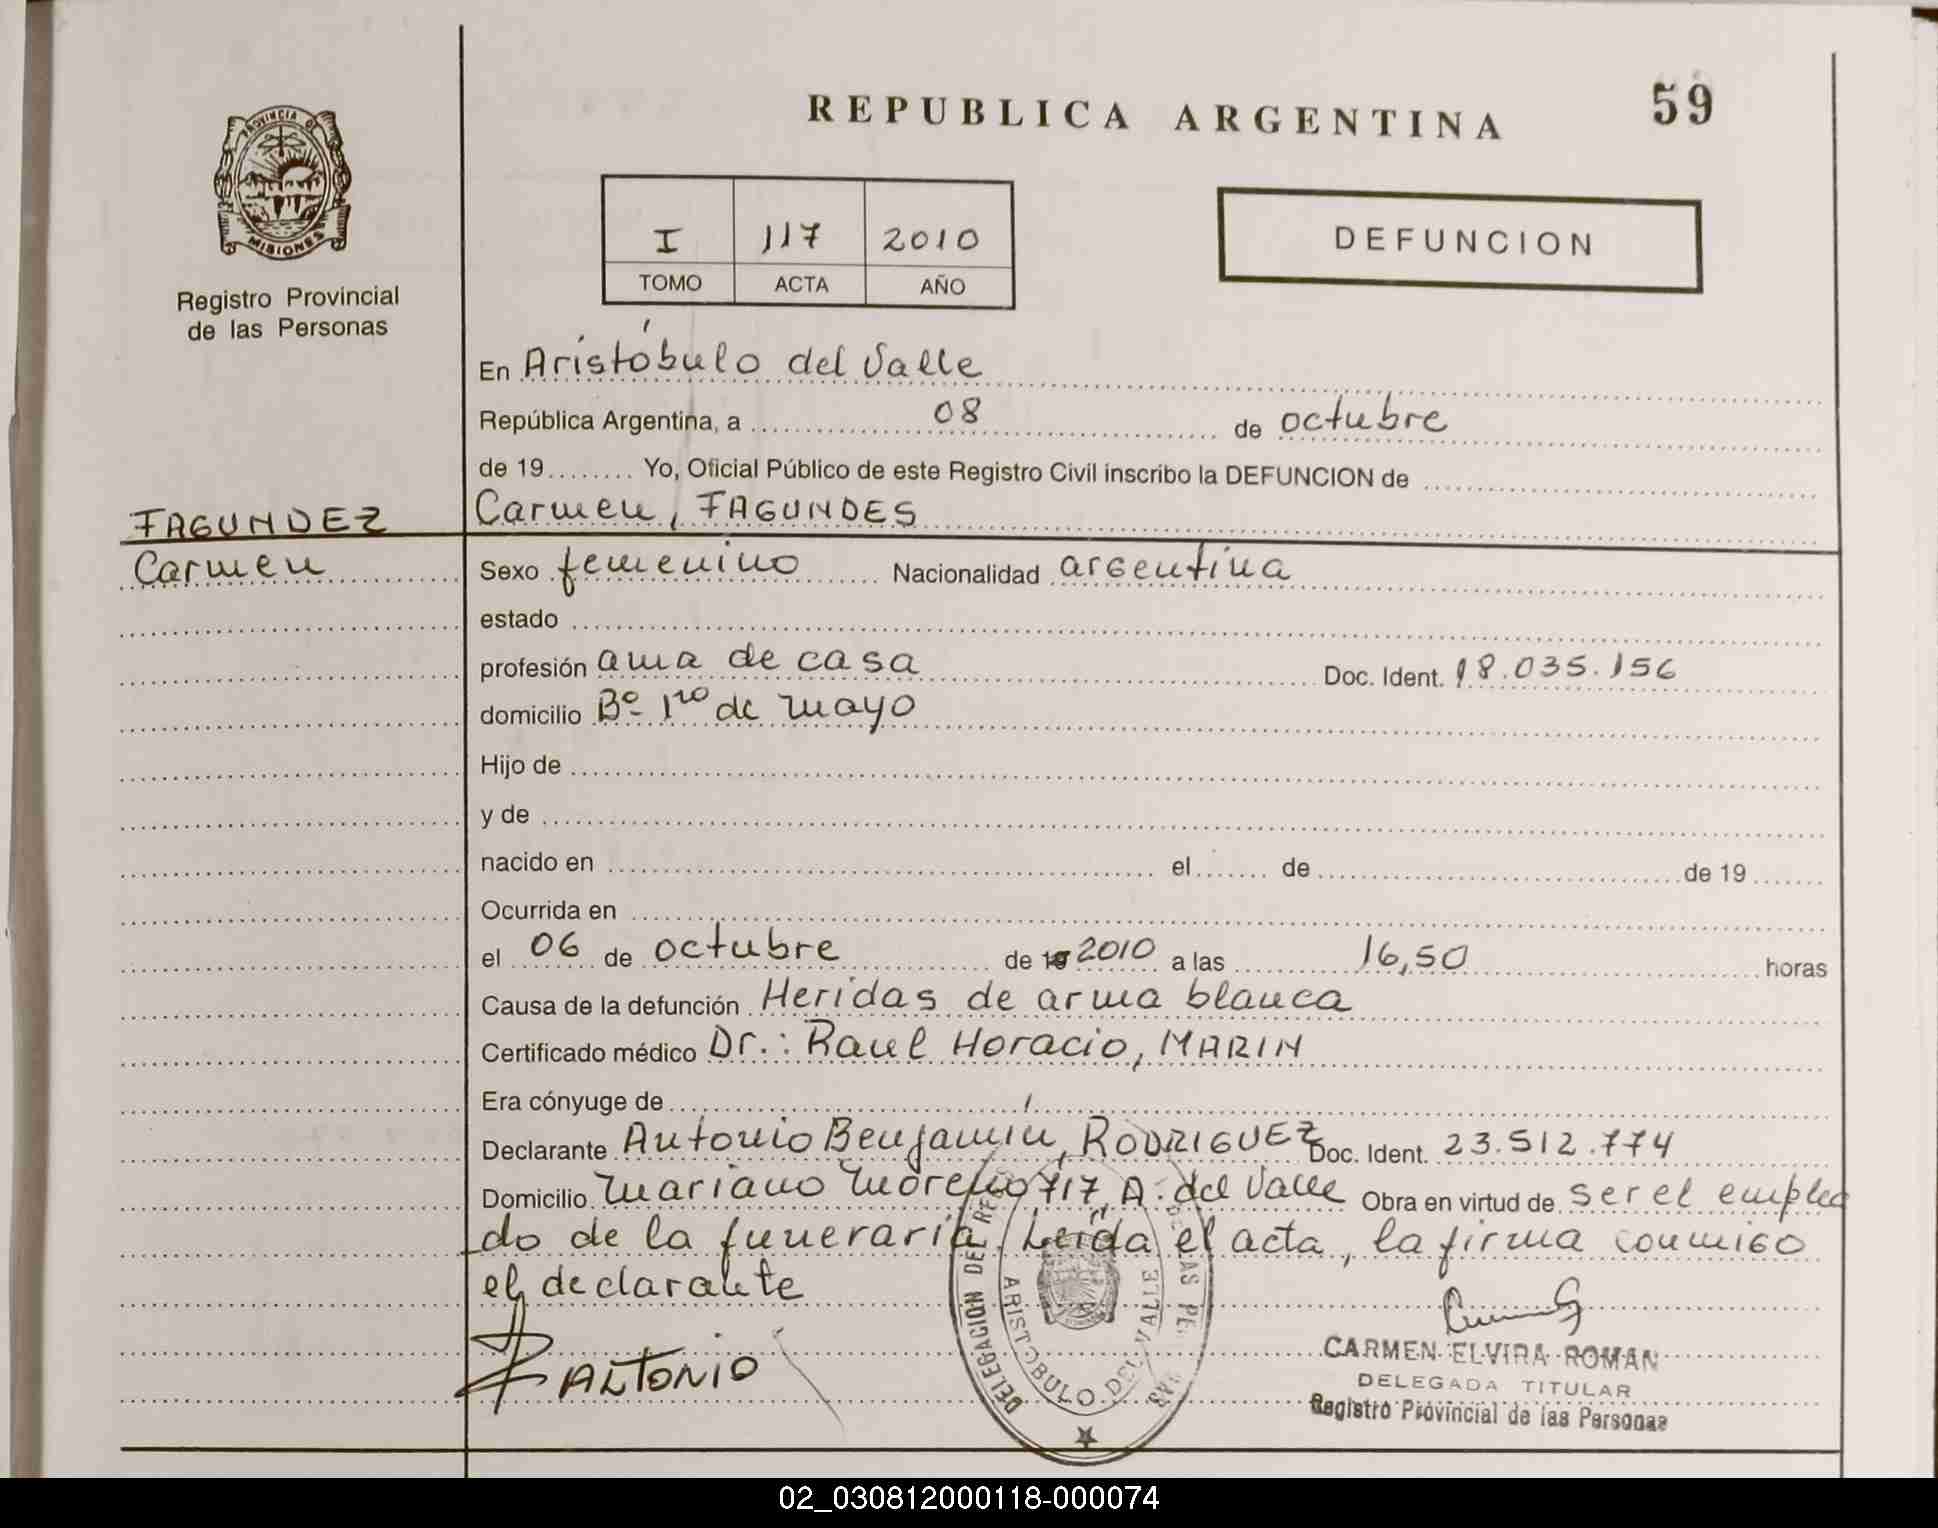 REPUBLICA ARGENTINA
59
PROVINCIA DE
MISIONES
Registro Provincial
de las Personas
I 117 2010
TOMO ACTA AÑO
DEFUNCION
En Aristóbulo del Valle
República Argentina, a 08 de octubre
de 19........ Yo, Oficial Público de este Registro Civil inscribo la DEFUNCION de
Carmen, FAGUNDES
FAGUNDEZ
Carmen
Sexo femenino Nacionalidad argentina
estado
profesión ama de casa Doc. Ident. 18.035.156
domicilio Bº 1ro de mayo
Hijo de
y de
nacido en el de de 19
Ocurrida en
el 06 de octubre de 19 2010 a las 16,50 horas
Causa de la defunción Heridas de arma blanca
Certificado médico Dr.: Raul Horacio, MARIN
Era cónyuge de
Declarante Antonio Benjamin, RODRIGUEZ Doc. Ident. 23.512.774
Domicilio Mariano Moreno 717, A. del Valle Obra en virtud de ser el emplea
do de la funeraria. Leída el acta, la firma conmigo
el declarante
ANTONIO
DELEGACION DEL REG DE LAS PE
ARISTOBULO DEL VALLE
CARMEN ELVIRA ROMAN
DELEGADA TITULAR
Registro Provincial de las Personas
02_030812000118-000074